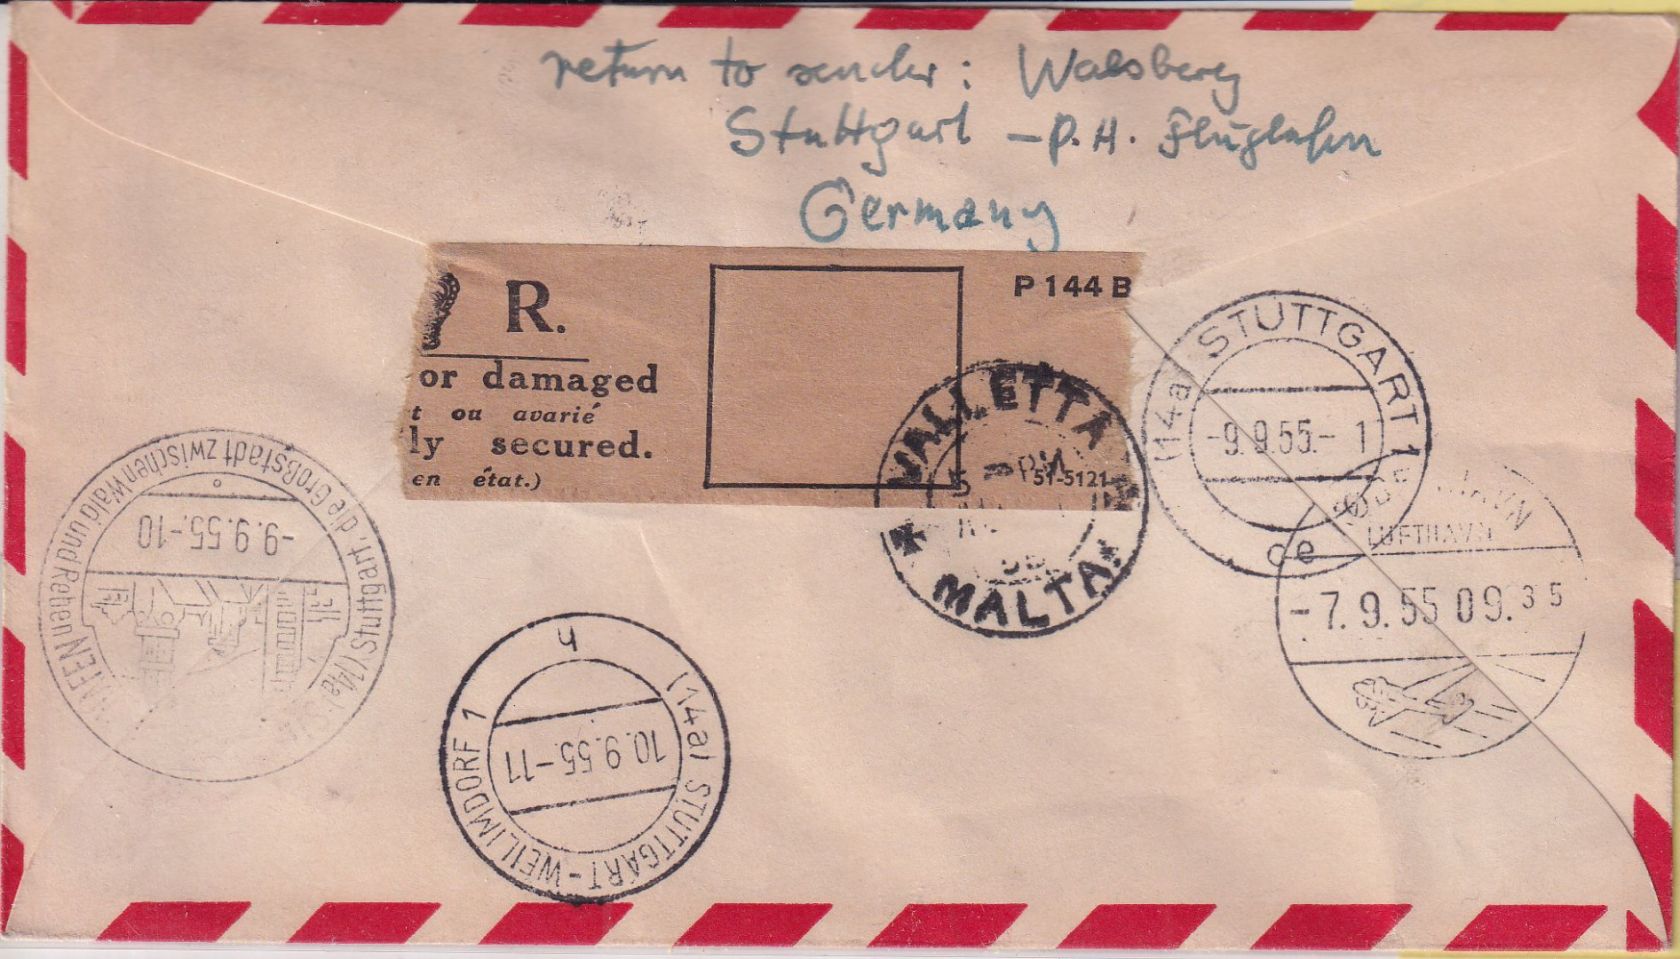 return to sender: Walsberg
Stuttgart - P.H. Flughafen
Germany
R.
P 144 B
or damaged
t ou avarié
ly secured.
en état.)
51-5121
VALLETTA
PM
MALTA
(14a) STUTTGART 1
-9.9.55.-1
ce
LUFTHAVN
-7.9.55 09.35
Stuttgart, die Großstadt zwischen Wald und Reben
-9.9.55.-10
(14a)
(14a) STUTTGART-WEILIMDORF 1
10.9.55.-11